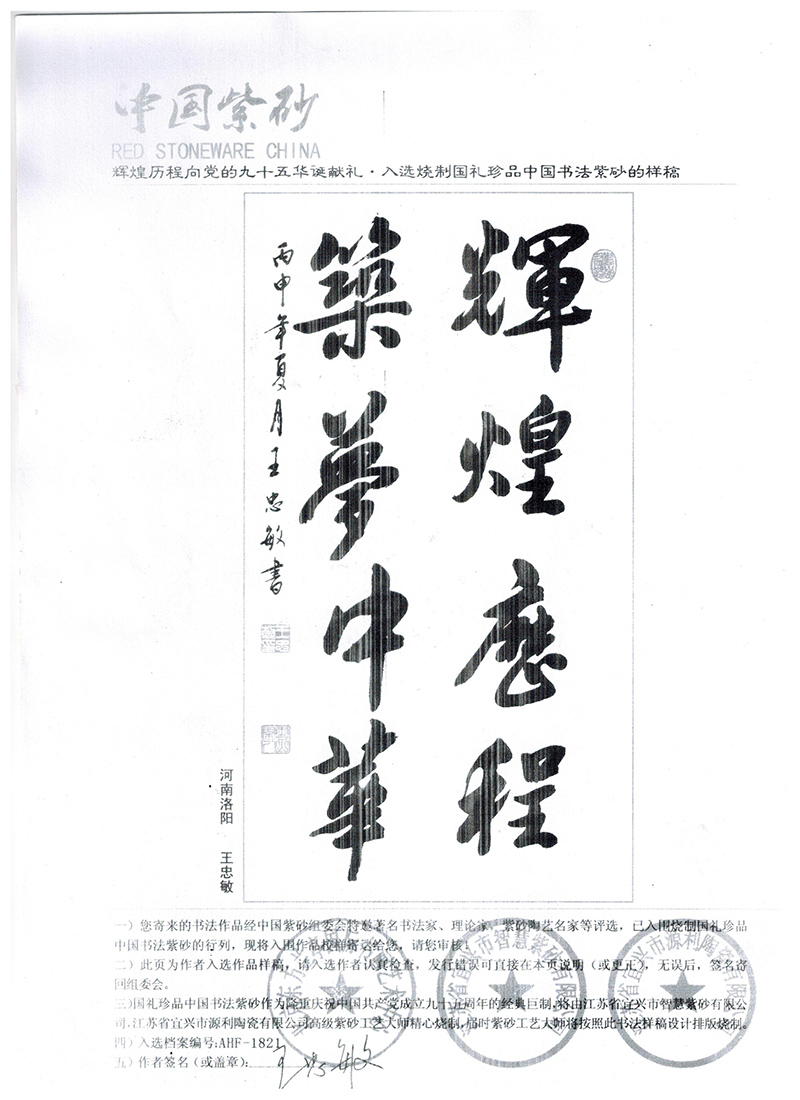 中国紫砂
RED STONEWARE CHINA
辉煌历程向党的九十五华诞献礼·入选烧制国礼珍品中国书法紫砂的样稿
輝煌歷程
築夢中華
丙申年夏月王忠敏書
河南洛阳 王忠敏
一)您寄来的书法作品经中国紫砂组委会特邀著名书法家、理论家、紫砂陶艺名家等评选，已入围烧制国礼珍品
中国书法紫砂的行列，现将入围作品校样寄达给您，请您审核！
二）此页为作者入选作品样稿，请入选作者认真检查，发行错误可直接在本页说明（或更正），无误后，签名寄
回组委会。
三)国礼珍品中国书法紫砂作为隆重庆祝中国共产党成立九十五周年的经典巨制，将由江苏省宜兴市智慧紫砂有限公
司,江苏省宜兴市源利陶瓷有限公司高级紫砂工艺大师精心烧制,届时紫砂工艺大师将按照此书法样稿设计排版烧制。
四）入选档案编号:AHF-1821
五）作者签名（或盖章）: 王忠敏